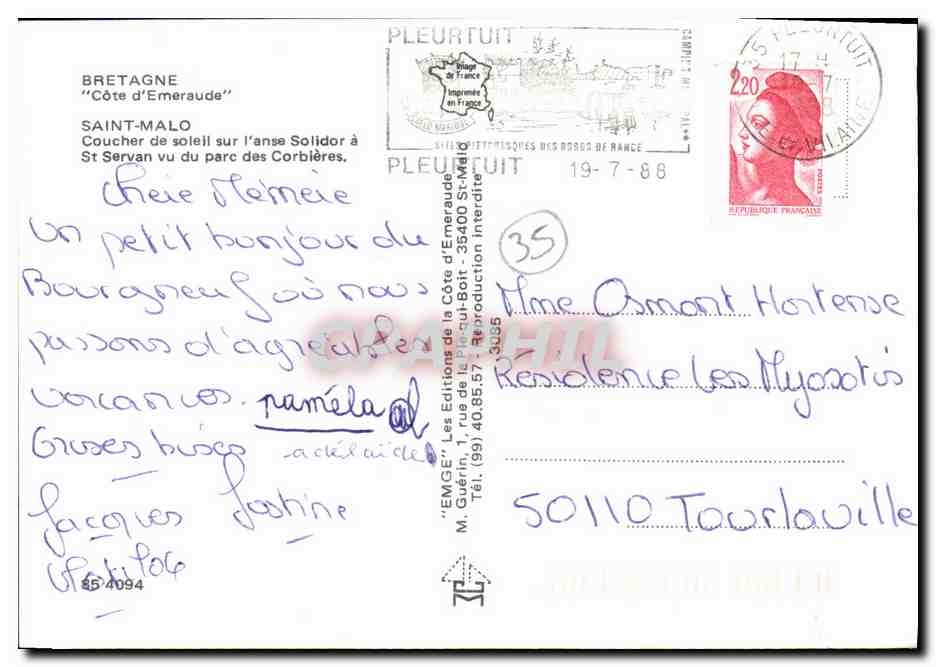 BRETAGNE
"Côte d'Emeraude"
SAINT-MALO
Coucher de soleil sur l'anse Solidor à
St Servan vu du parc des Corbières.
Chère Mémère
Un petit bonjour du
Bourgneuf où nous
passons d'agréables
vacances.
paméla
Grosses bises
adélaïde
Jacques Josline
85 4094
PLEURTUIT
Image
de France
Imprimée
en France
SITES PITTORESQUES DES BORDS DE RANCE
PLEURTUIT 19-7-88
35 PLEURTUIT
17 H
ILLE ET VILAINE
2,20
POSTES
REPUBLIQUE FRANÇAISE
35
"EMGE" Les Editions de la Côte d'Emeraude
M. Guérin, 1, rue de la Pie-qui-Boit - 35400 St-Malo
Tél. (99) 40.85.57 - Reproduction interdite
3085
CPAPHIL
Mme Osmont Hortense
Résidence Les Myosotis
50110 Tourlaville